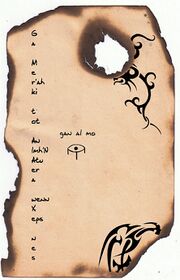 Ga
Me
r'ah
ki
t
ot
Au
Imh'N
Atu
er
a
wenn
X
eps
n
es
gan al mo